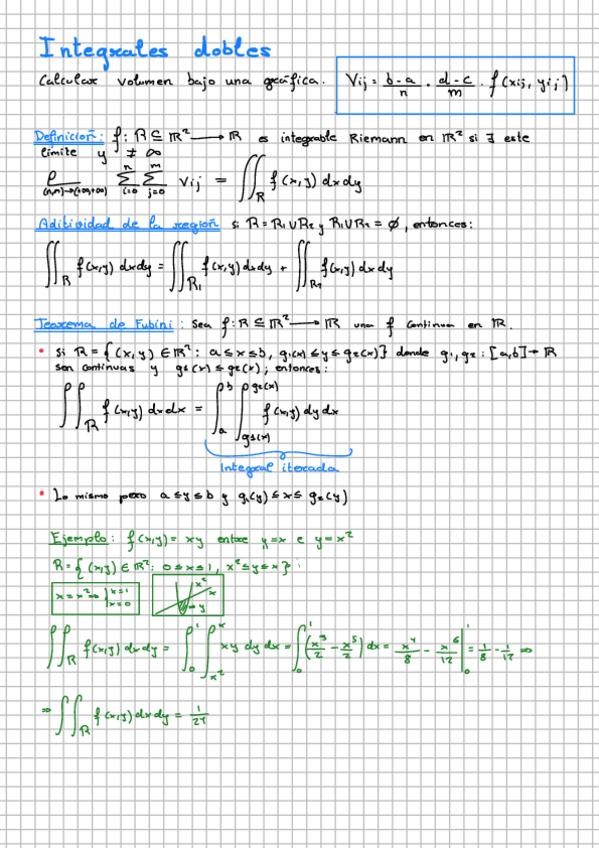 Integrales dobles
Calcular volumen bajo una gráfica. Vij = b-a/n · d-c/m · f(xij, yij)
Definición: f: R ⊆ ℝ² → ℝ es integrable Riemann en ℝ² si ∃ este
límite y ≠ ∞
l (n,m)→(+∞,+∞) Σ_{i=0}^{n} Σ_{j=0}^{m} Vij = ∬_R f(x,y) dxdy
Aditividad de la región si R = R₁ ∪ R₂ y R₁ ∪ R₂ = ∅, entonces:
∬_R f(x,y) dxdy = ∬_{R₁} f(x,y) dxdy + ∬_{R₂} f(x,y) dxdy
Teorema de Fubini: Sea f: R ⊆ ℝ² → ℝ una f continua en R.
• Si R = {(x,y) ∈ ℝ²: a ≤ x ≤ b, g₁(x) ≤ y ≤ g₂(x)} donde g₁, g₂: [a,b] → ℝ
son continuas y g₁(x) ≤ g₂(x); entonces:
∬_R f(x,y) dxdx = ∫_a^b ∫_{g₁(x)}^{g₂(x)} f(x,y) dy dx
Integral iterada
• Lo mismo pero a ≤ y ≤ b y g₁(y) ≤ x ≤ g₂(y)
Ejemplo: f(x,y) = xy entre y=x e y=x²
R = {(x,y) ∈ ℝ²: 0 ≤ x ≤ 1, x² ≤ y ≤ x}
x = x² ⇒ {x=1 x=0
x² x y
∬_R f(x,y) dxdy = ∫_0^1 ∫_{x²}^x xy dy dx = ∫_0^1 (x³/2 - x⁵/2) dx = x⁴/8 - x⁶/12 |_0^1 = 1/8 - 1/12 ⇒
⇒ ∬_R f(x,y) dxdy = 1/24